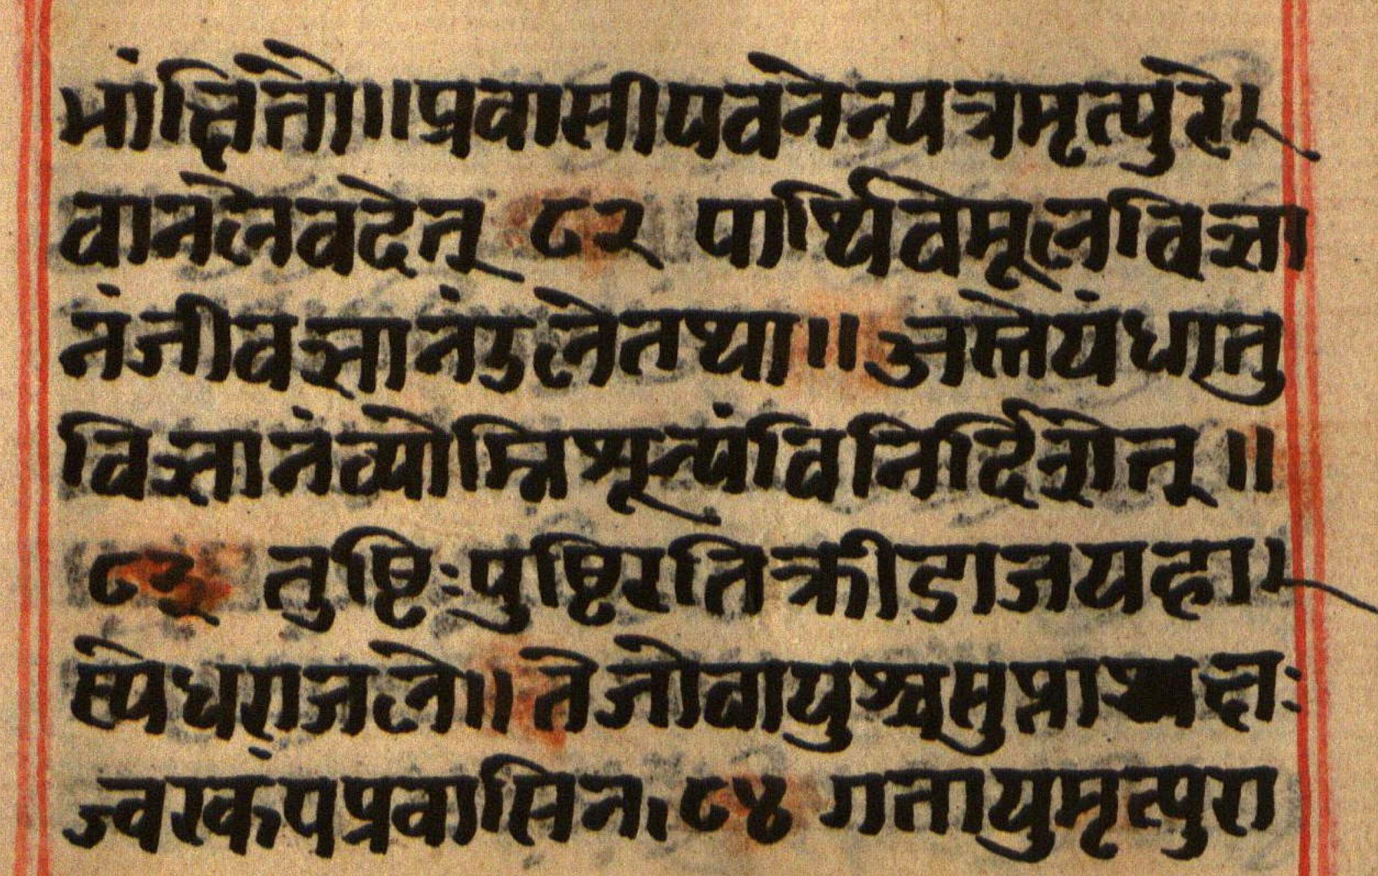 मांक्षितौ॥प्रवासीपवनेन्यत्रमृत्पुरे।
वानलेवदेत् ८२ पार्थिवेमूलविज्ञा
नंजीवज्ञानंजलेतथा॥अग्नेयंधातु
विज्ञानंव्योम्निशून्यंविनिर्दिशेत्॥
८३ तुष्टिःपुष्टिरतिक्रीडाजयहा।
स्पेधराजले॥तेजोवायुश्चसुप्ताश्चक्षः
ज्वरकंपप्रवासिन।८४ गतायुमृत्पुरा